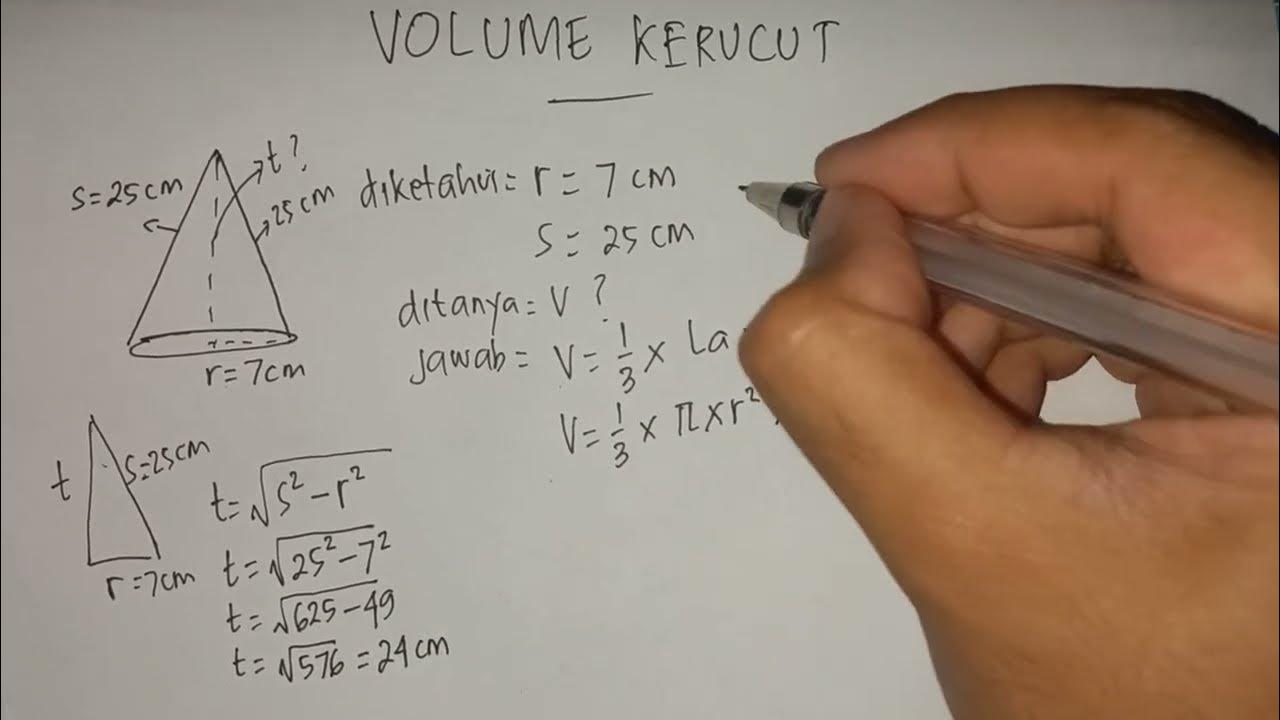 VOLUME KERUCUT
s=25cm
t?
25cm
r=7cm
diketahui= r= 7 cm
s= 25 cm
ditanya= V ?
jawab= V= 1/3 x La
V= 1/3 x π x r²
t
s=25cm
r=7cm
t= √s²-r²
t= √25²-7²
t= √625-49
t= √576 = 24 cm